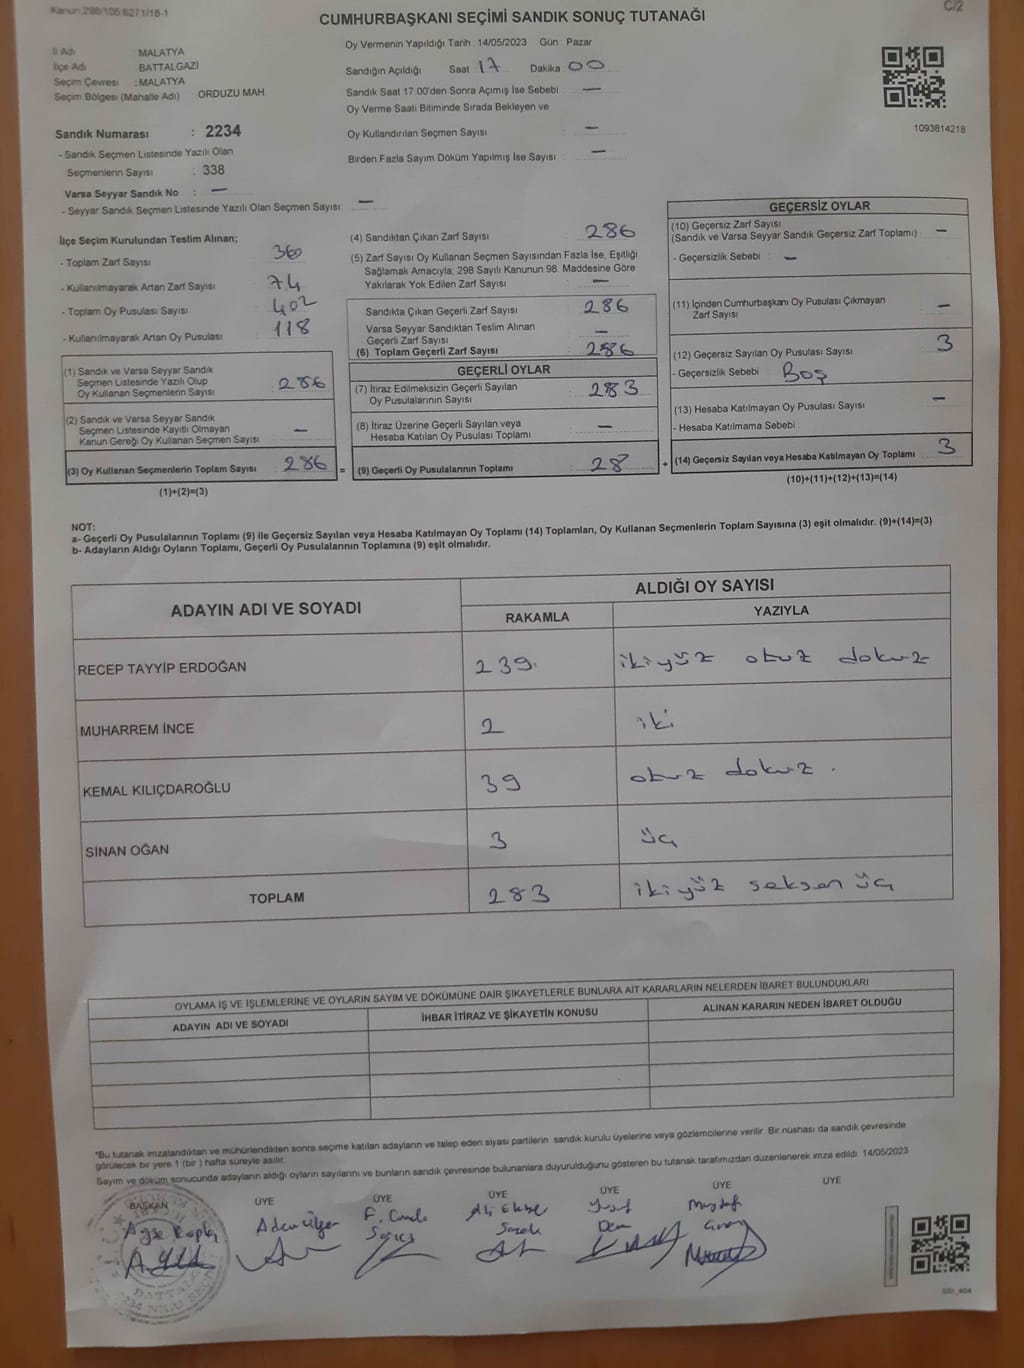 Kanun:298/105;6271/18-1
C/2
CUMHURBAŞKANI SEÇİMİ SANDIK SONUÇ TUTANAĞI
İl Adı : MALATYA
İlçe Adı : BATTALGAZİ
Seçim Çevresi : MALATYA
Seçim Bölgesi (Mahalle Adı) ORDUZU MAH.
Sandık Numarası : 2234
- Sandık Seçmen Listesinde Yazılı Olan
Seçmenlerin Sayısı : 338
Varsa Seyyar Sandık No : —
- Seyyar Sandık Seçmen Listesinde Yazılı Olan Seçmen Sayısı: —
Oy Vermenin Yapıldığı Tarih : 14/05/2023 Gün Pazar
Sandığın Açıldığı Saat 17 Dakika 00
Sandık Saat 17:00'den Sonra Açımış İse Sebebi : —
Oy Verme Saati Bitiminde Sırada Bekleyen ve
Oy Kullandırılan Seçmen Sayısı : —
Birden Fazla Sayım Döküm Yapılmış İse Sayısı : —
1093814218
İlçe Seçim Kurulundan Teslim Alınan;
- Toplam Zarf Sayısı : 360
- Kullanılmayarak Artan Zarf Sayısı : 74
- Toplam Oy Pusulası Sayısı : 402
- Kullanılmayarak Artan Oy Pusulası : 118
(1) Sandık ve Varsa Seyyar Sandık
Seçmen Listesinde Yazılı Olup
Oy Kullanan Seçmenlerin Sayısı : 286
(2) Sandık ve Varsa Seyyar Sandık
Seçmen Listesinde Kayıtlı Olmayan
Kanun Gereği Oy Kullanan Seçmen Sayısı : —
(3) Oy Kullanan Seçmenlerin Toplam Sayısı : 286 =
(1)+(2)=(3)
(4) Sandıktan Çıkan Zarf Sayısı : 286
(5) Zarf Sayısı Oy Kullanan Seçmen Sayısından Fazla İse, Eşitliği
Sağlamak Amacıyla; 298 Sayılı Kanunun 98. Maddesine Göre
Yakılarak Yok Edilen Zarf Sayısı : —
Sandıkta Çıkan Geçerli Zarf Sayısı : 286
Varsa Seyyar Sandıktan Teslim Alınan
Geçerli Zarf Sayısı : —
(6) Toplam Geçerli Zarf Sayısı : 286
GEÇERLİ OYLAR
(7) İtiraz Edilmeksizin Geçerli Sayılan
Oy Pusulalarının Sayısı : 283
(8) İtiraz Üzerine Geçerli Sayılan veya
Hesaba Katılan Oy Pusulası Toplamı : —
(9) Geçerli Oy Pusulalarının Toplamı : 28 +
GEÇERSİZ OYLAR
(10) Geçersiz Zarf Sayısı
(Sandık ve Varsa Seyyar Sandık Geçersiz Zarf Toplamı) : —
- Geçersizlik Sebebi : —
(11) İçinden Cumhurbaşkanı Oy Pusulası Çıkmayan
Zarf Sayısı : —
(12) Geçersiz Sayılan Oy Pusulası Sayısı : 3
- Geçersizlik Sebebi : Boş
(13) Hesaba Katılmayan Oy Pusulası Sayısı : —
- Hesaba Katılmama Sebebi :
(14) Geçersiz Sayılan veya Hesaba Katılmayan Oy Toplamı : 3
(10)+(11)+(12)+(13)=(14)
NOT:
a- Geçerli Oy Pusulalarının Toplamı (9) ile Geçersiz Sayılan veya Hesaba Katılmayan Oy Toplamı (14) Toplamları, Oy Kullanan Seçmenlerin Toplam Sayısına (3) eşit olmalıdır. (9)+(14)=(3)
b- Adayların Aldığı Oyların Toplamı, Geçerli Oy Pusulalarının Toplamına (9) eşit olmalıdır.
ADAYIN ADI VE SOYADI
ALDIĞI OY SAYISI
RAKAMLA YAZIYLA
RECEP TAYYİP ERDOĞAN 239. ikiyüz otuz dokuz
MUHARREM İNCE 2 iki
KEMAL KILIÇDAROĞLU 39 otuz dokuz .
SİNAN OĞAN 3 üç
TOPLAM 283 ikiyüz seksen üç
OYLAMA İŞ VE İŞLEMLERİNE VE OYLARIN SAYIM VE DÖKÜMÜNE DAİR ŞİKAYETLERLE BUNLARA AİT KARARLARIN NELERDEN İBARET BULUNDUKLARI
ADAYIN ADI VE SOYADI İHBAR İTİRAZ VE ŞİKAYETİN KONUSU ALINAN KARARIN NEDEN İBARET OLDUĞU
*Bu tutanak imzalandıktan ve mühürlendikten sonra seçime katılan adayların ve talep eden siyasi partilerin sandık kurulu üyelerine veya gözlemcilerine verilir. Bir nüshası da sandık çevresinde
görülecek bir yere 1 (bir ) hafta süreyle asılır.
Sayım ve döküm sonucunda adayların aldığı oyların sayılarını ve bunların sandık çevresinde bulunanlara duyurulduğunu gösteren bu tutanak tarafımızdan düzenlenerek imza edildi. 14/05/2023
BAŞKAN ÜYE ÜYE ÜYE ÜYE ÜYE ÜYE